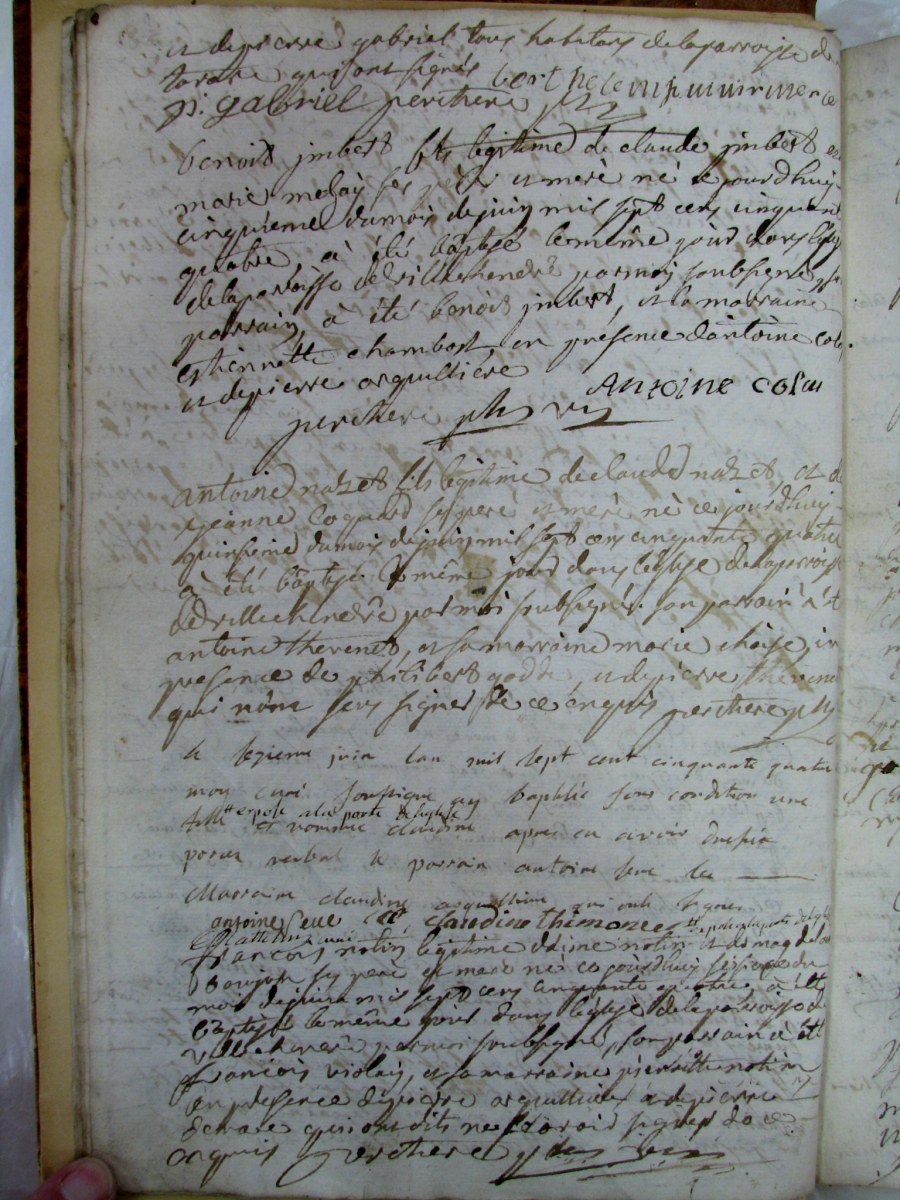 et de pierre gabriel tous habitans de la parroisse de
qui ont signés
p: gabriel perichere
benoist jmbert fils legitime de claude jmbert et
marie melay ses père et merè né ce jourd'huy
cinquième du mois de juin mil sept cens cinquante
quatre à été bâptisé le même jour dans l'égl
de la paroisse de villechenêve par moi soubsigné
parrain, à été benoist jmbert, et la marraine
estiennette chambost, en présence d'antoine cola
et de pierre arquilliere Antoine colas
perichere
antoine natzet fils legitime de claude natzet, et de
jeanne coquard ses pere et merè né ce jourd'huy
quinsieme du mois de juin mil sept cens cinquante quatre
à été bâptisé le même jour dans l'église de la parroisse
de villechenêve par moi soubsigné son parrain a été
antoine thevenet, et sa marraine marie in
presence de philibert godde, et de pierre thevenet
qui n'ont sceu signer de ce enquis perichere
le sezieme juin lan mil sept cent cinquante quatre
moy curé soussigné ay baptisé sous condition une
fille exposé a la porte de leglise
et nommée claudine apres en avoir dressé
verbal le parrain antoine seve la
Marraine claudine arquilliere qui ont signe
antoine seve claudine thimone
françois notin legitime notin et de magdelaine
ses pere et mere né ce jourd'huy seisieme du
mois de juin mil sept cens cinquante quatre à été
baptisé le même jour dans l'églize de la paroisse de
villechenêve par moi soubsigné, son parrain à été
françois violay, et sa marraine pierrette notin
en presence de pierre arquilliere et de pierre
qui ont dits ne scavoir signer de ce
enquis perichere